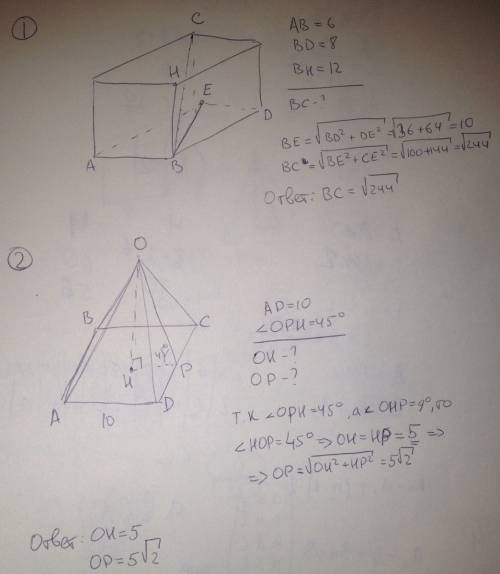 1
C
H
E
D
A
B
AB = 6
BD = 8
BH = 12
BC - ?
BE = √BD² + DE² = √36 + 64 = 10
BC = √BE² + CE² = √100 + 144 = √244
Ответ: BC = √244
2
O
B
C
45°
H
P
A
D
10
AD = 10
∠OPH = 45°
OH - ?
OP - ?
Т.к ∠OPH = 45°, а ∠OHP = 9°, то
∠HOP = 45° => OH = HP = 5 =>
=> OP = √OH² + HP² = 5√2
Ответ: OH = 5
OP = 5√2